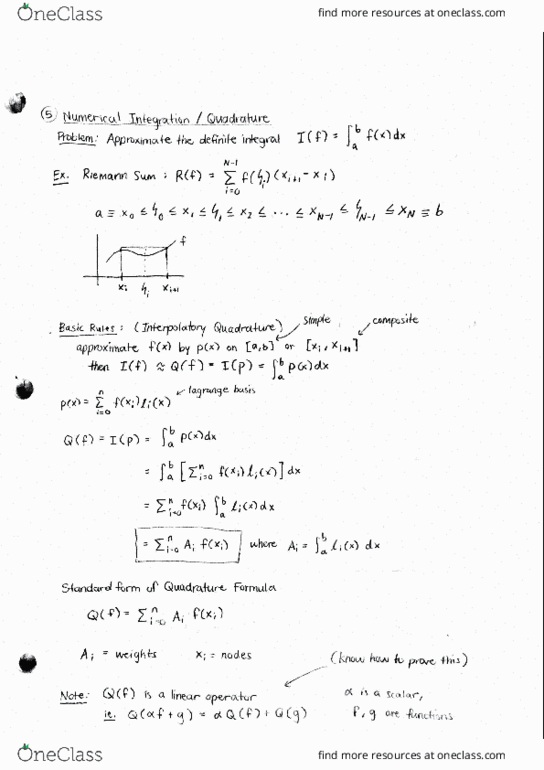 OneClass find more resources at oneclass.com
⑤ Numerical Integration / Quadrature
Problem: Approximate the definite integral I(f) = ∫_a^b f(x)dx
Ex. Riemann Sum : R(f) = Σ_{i=0}^{N-1} f(ξ_i)(x_{i+1} - x_i)
a ≡ x_0 ≤ ξ_0 ≤ x_1 ≤ ξ_1 ≤ x_2 ≤ ... ≤ x_{N-1} ≤ ξ_{N-1} ≤ x_N ≡ b
f
x_i ξ_i x_{i+1}
Basic Rules : (Interpolatory Quadrature) simple composite
approximate f(x) by p(x) on [a,b] or [x_i, x_{i+1}]
then I(f) ≈ Q(f) = I(p) = ∫_a^b p(x)dx
p(x) = Σ_{i=0}^n f(x_i) l_i(x) lagrange basis
Q(f) = I(p) = ∫_a^b p(x)dx
= ∫_a^b [Σ_{i=0}^n f(x_i) l_i(x)] dx
= Σ_{i=0}^n f(x_i) ∫_a^b l_i(x) dx
= Σ_{i=0}^n A_i f(x_i) where A_i = ∫_a^b l_i(x) dx
Standard form of Quadrature Formula
Q(f) = Σ_{i=0}^n A_i f(x_i)
A_i = weights x_i = nodes (know how to prove this)
Note: Q(f) is a linear operator α is a scalar,
ie. Q(αf + g) = α Q(f) + Q(g) f, g are functions
OneClass find more resources at oneclass.com